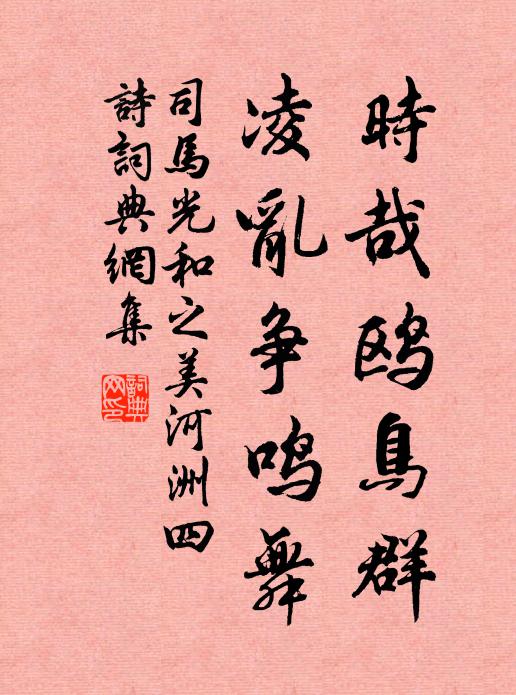 時哉鸥鳥群
凌亂争鳴舞
司馬光和之美河洲四
詩詞典網集
詞典網印